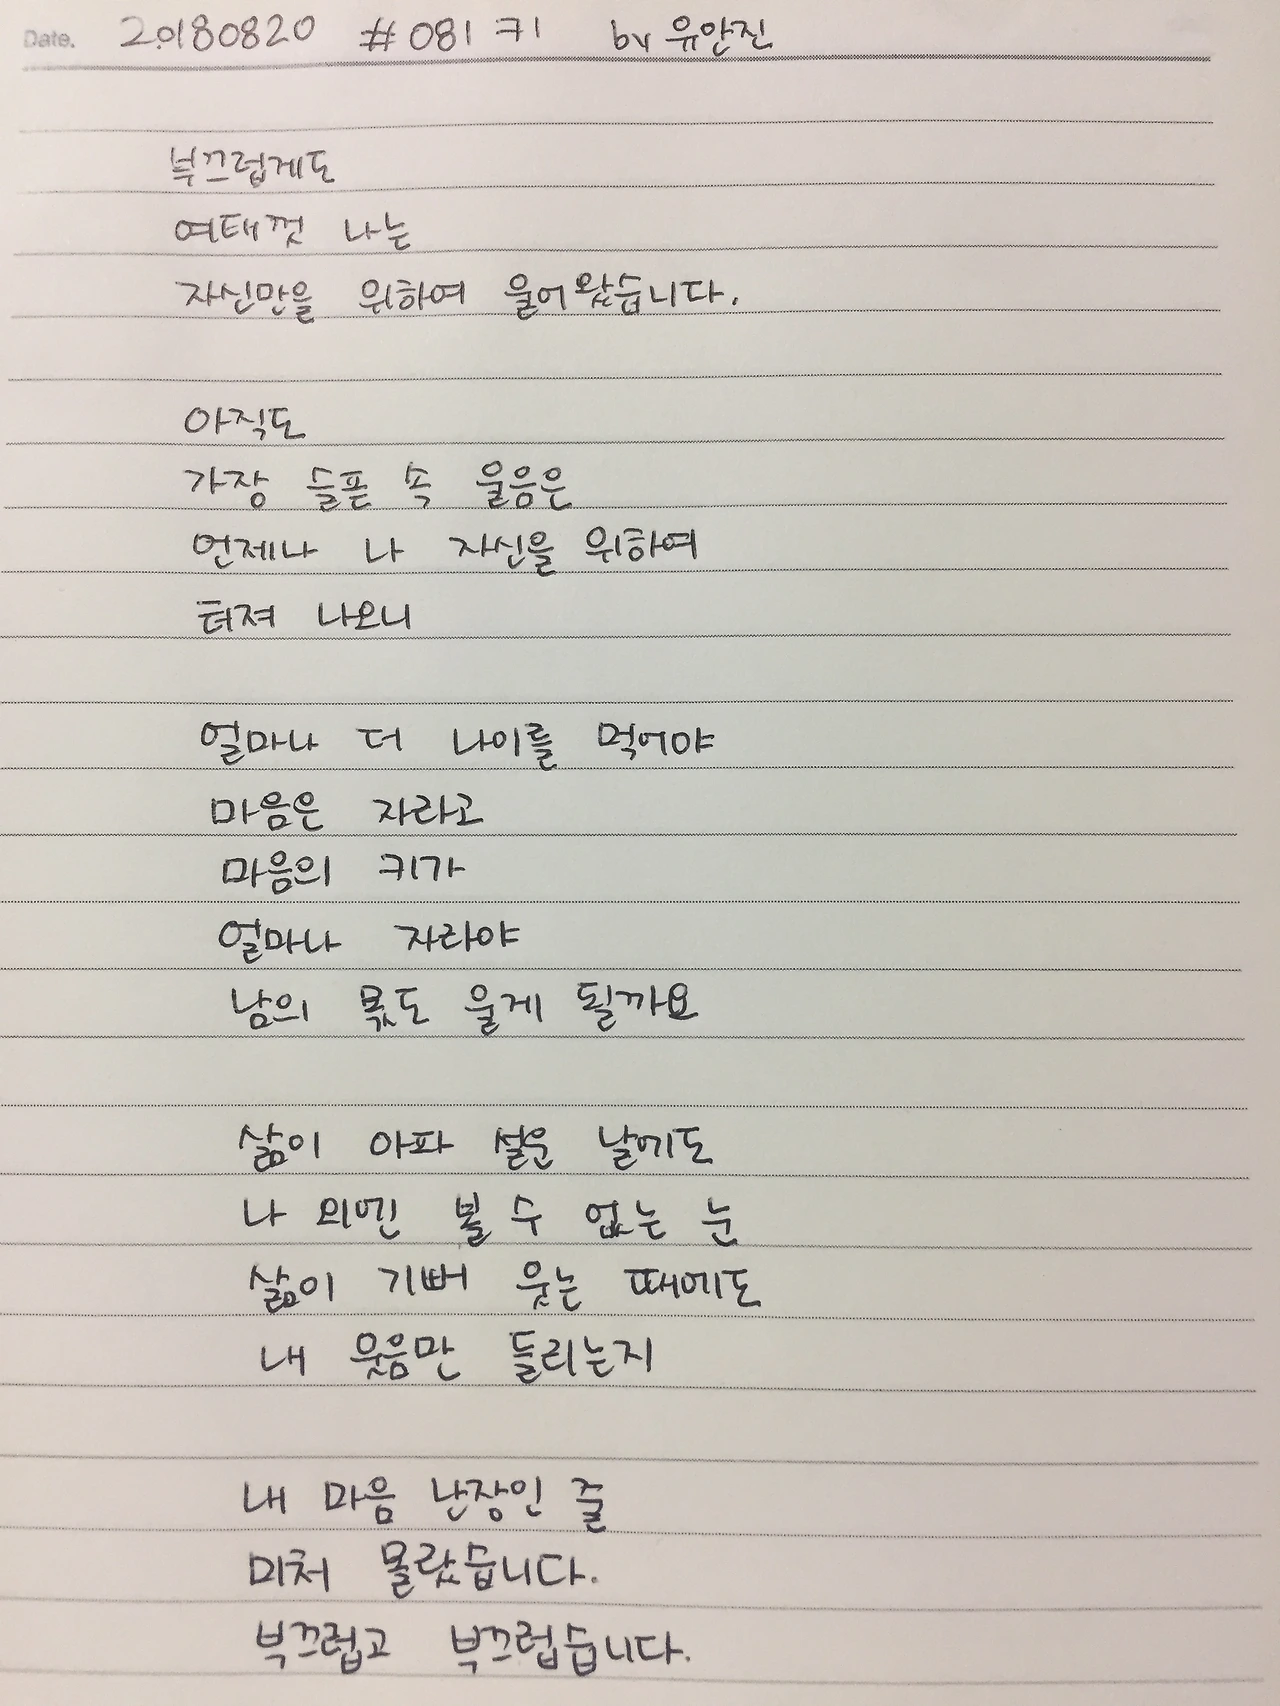 Date. 20180820 #081 키 by 유안진
부끄럽게도
여태껏 나는
자신만을 위하여 울어왔습니다.
아직도
가장 슬픈 속 울음은
언제나 나 자신을 위하여
터져 나오니
얼마나 더 나이를 먹어야
마음은 자라고
마음의 키가
얼마나 자라야
남의 몫도 울게 될까요
삶이 아파 설운 날에도
나 외엔 볼 수 없는 눈
삶이 기뻐 웃는 때에도
내 웃음만 들리는지
내 마음 난장인 줄
미처 몰랐습니다.
부끄럽고 부끄럽습니다.